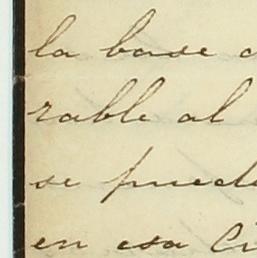 la base
rable al
se puede
en esa